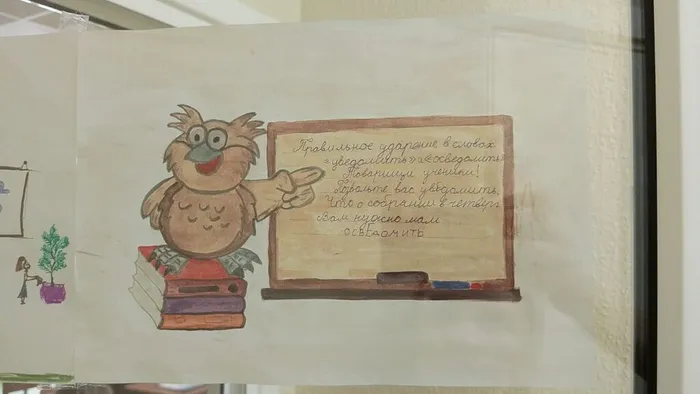 Правильное ударение в словах
«уведомить» и «осведомить»
Товарищи ученики!
Позвольте вас уведомить,
Что о собрании в четверг
Вам нужно мам
ОСВЕДОМИТЬ